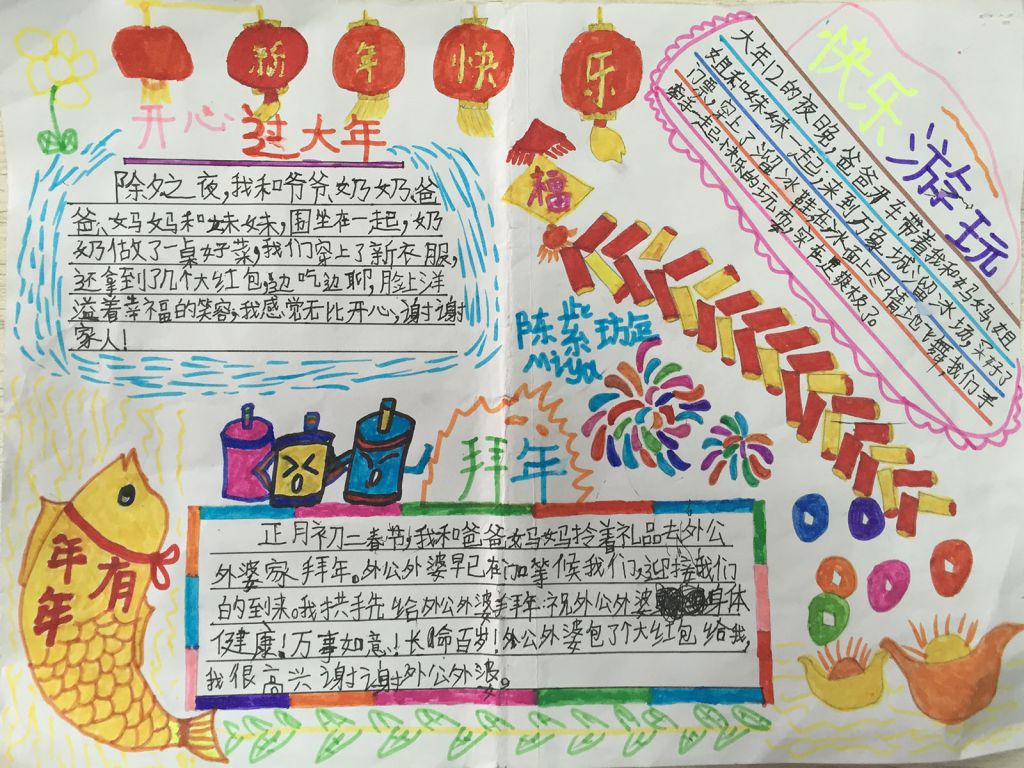 新年快乐
开心过大年
除夕之夜,我和爷爷、奶奶、爸
爸、妈妈和妹妹,围坐在一起,奶
奶做了一桌好菜,我们穿上了新衣服,
还拿到了几个大红包,边吃边聊,脸上洋
溢着幸福的笑容,我感觉无比开心,谢谢
家人!
福
快乐游玩
大年12的夜晚,爸爸开车带着我和妈妈、姐
姐和妹妹一起,来到万象城的冰场,买好了
门票,穿上了溜冰鞋在冰面上尽情地飞舞,我们手
牵手一起快乐的玩耍,实在是爽极了。
陈紫
Miya
拜年
正月初二春节,我和爸爸妈妈拎着礼品去外公
外婆家拜年。外公外婆早已在门口等候我们,迎接我们
的到来。我拱手先给外公外婆拜年:祝外公外婆身体
健康!万事如意!长命百岁!外公外婆包了个大红包给我,
我很高兴谢谢外公外婆。
年年有